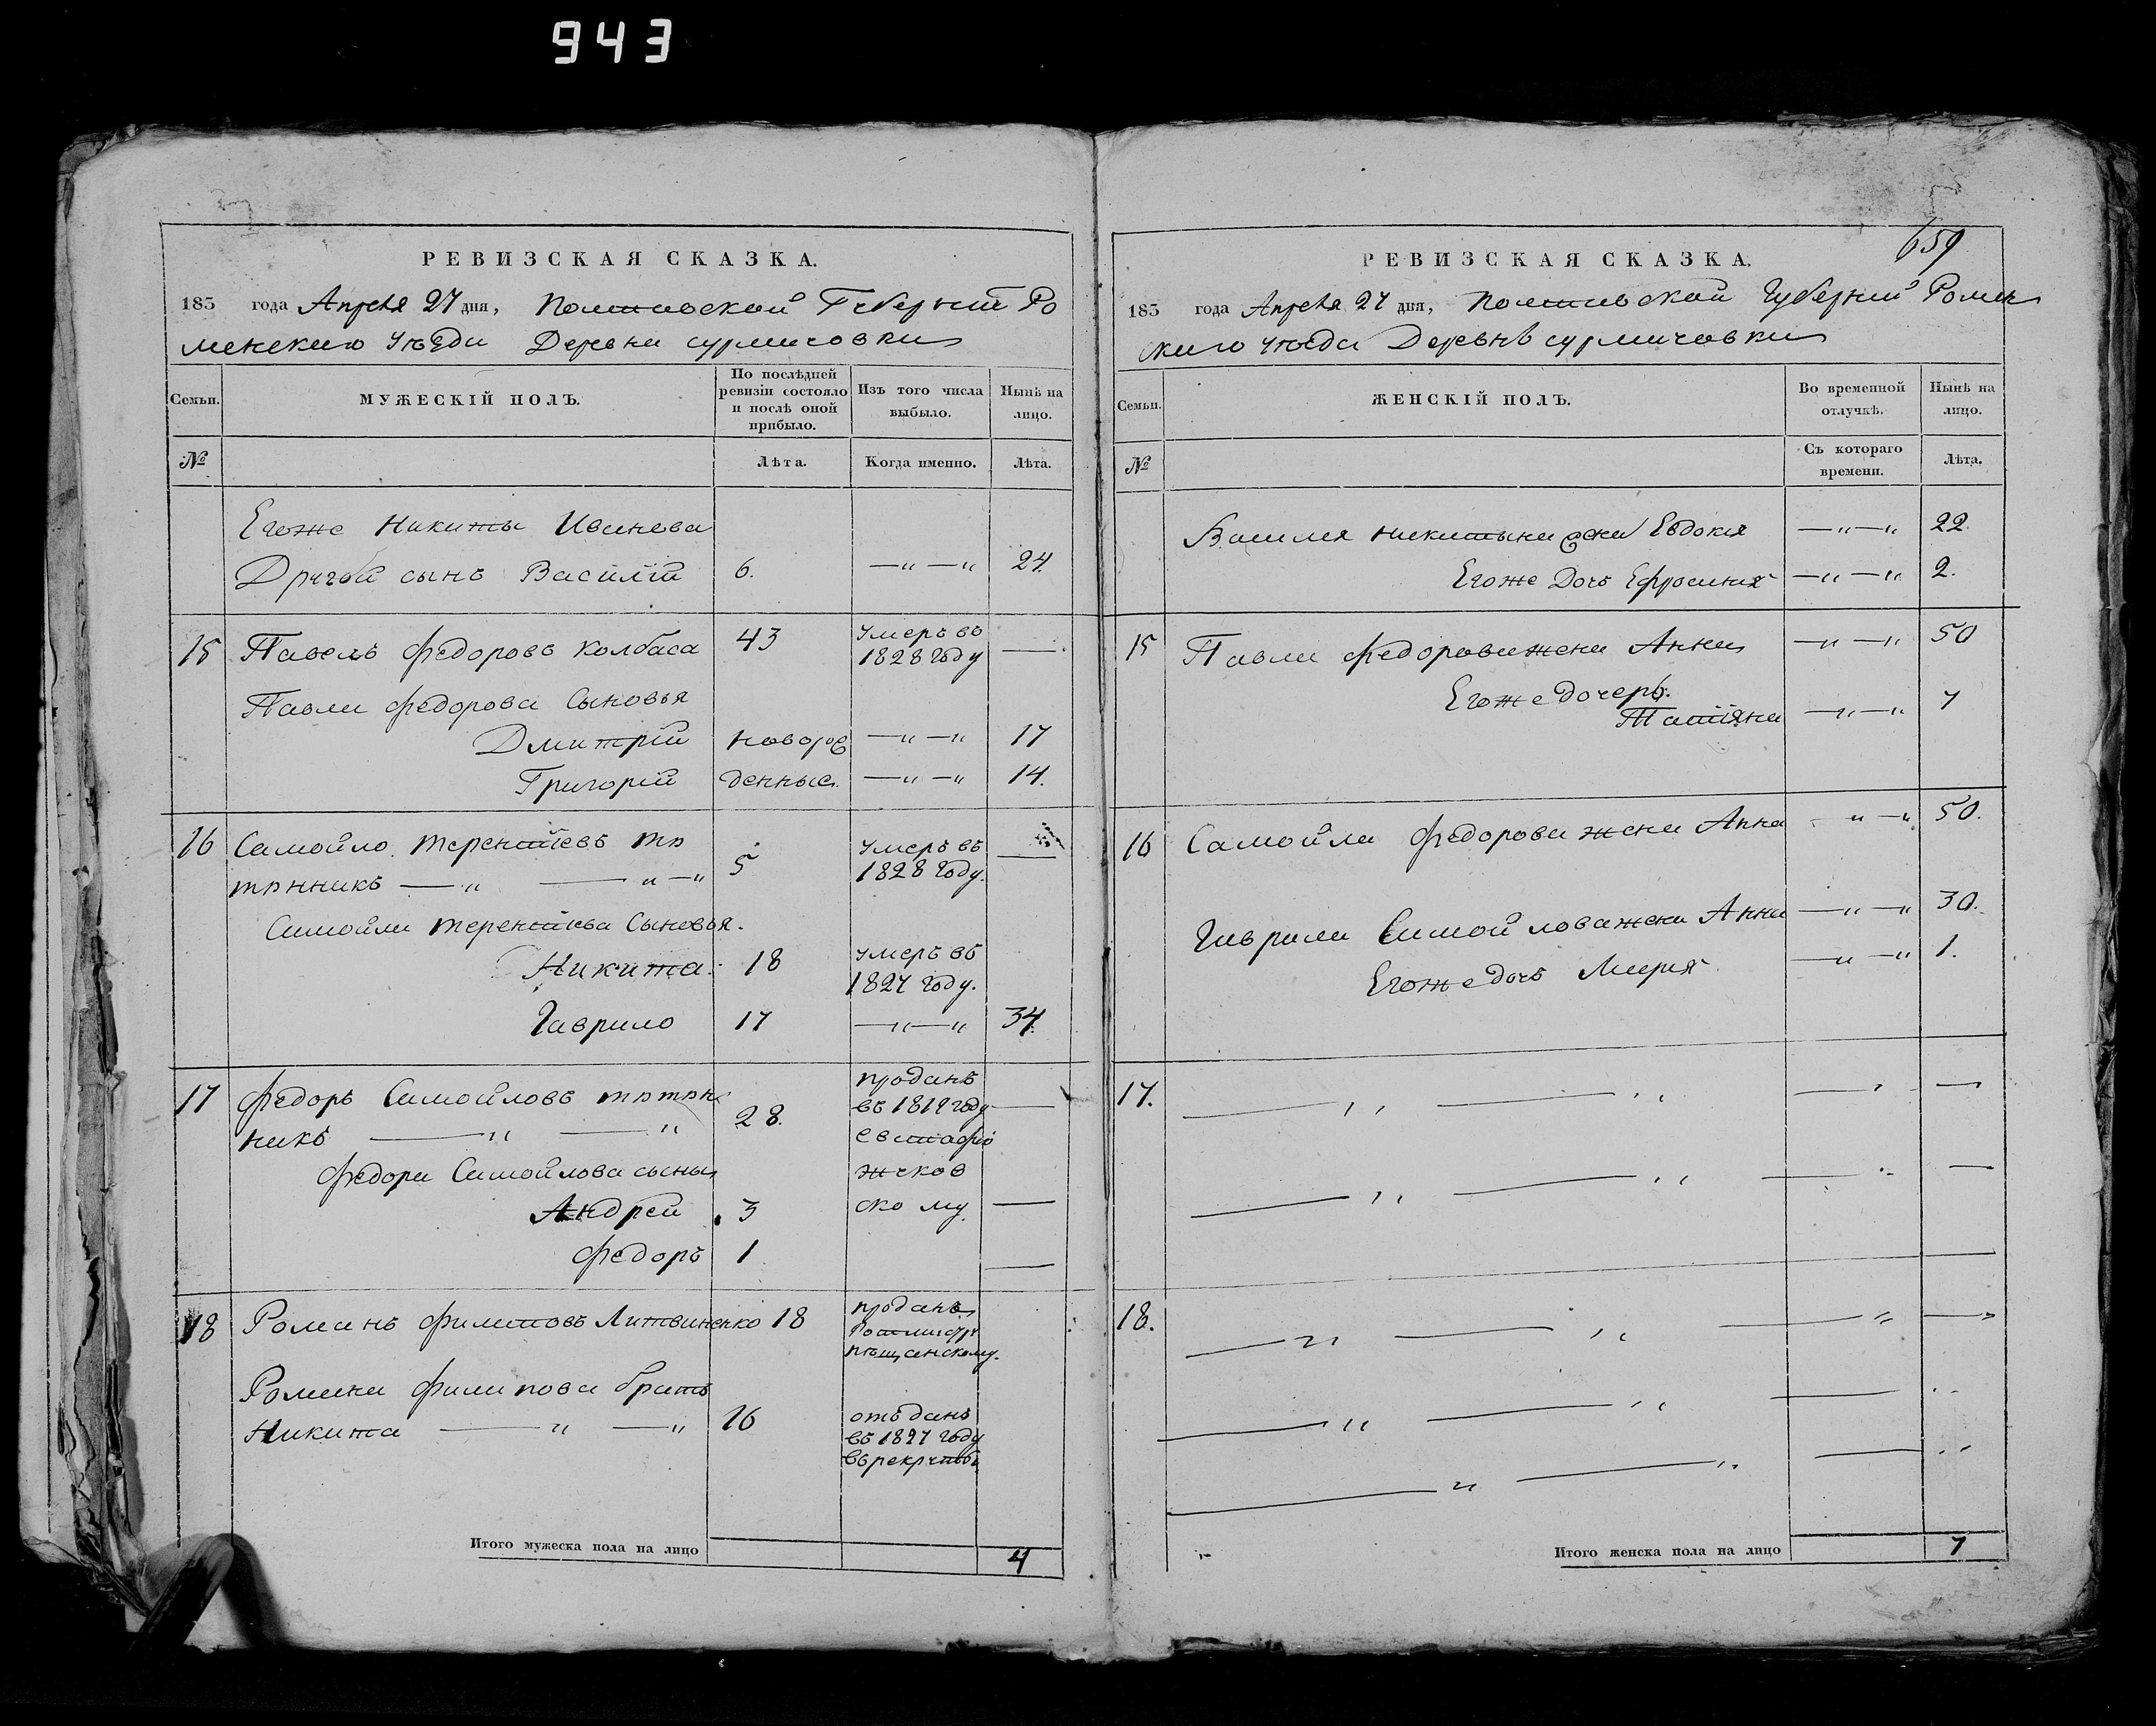 943
РЕВИЗСКАЯ СКАЗКА.
183 года Апреля 27 дня, Полтавской Губернии Ро
менского Уѣзда Деревни Сурмачовки
Семьи. МУЖЕСКІЙ ПОЛЪ. По послѣдней ревизіи состояло и послѣ оной прибыло. Изъ того числа выбыло. Нынѣ на лицо.
№ Лѣта. Когда именно. Лѣта.
Егоже Никиты Иванова
Другой сынъ Василій 6. —„—„ 24.
15 Павелъ Федоровъ Колбаса 43 умеръ въ 1828 году —
Павла Федорова Сыновья
Дмитрій новорож —„—„ 17
Григорій денные. —„—„ 14.
16 Самойло Терентіевъ тю
тюнникъ —„ —„—„ 5 умеръ въ 1828 году. —
Самойла Терентіева Сыновья.
Никита 18 умеръ въ 1827 году.
Гаврило 17 —„—„ 34.
17 Федоръ Самойловъ тютюн
никъ —„ —„ 28. проданъ въ 1819 году —
Федора Самойлова сыны
Андрей 3 скому —
Федоръ 1 —
18 Романъ Филиповъ Литвиненко 18 проданъ
Романа Филипова братъ
Никита —„ —„ 16 отъданъ въ 1827 году въ рекруты
Итого мужеска пола на лицо 4
659
РЕВИЗСКАЯ СКАЗКА.
183 года Апреля 27 дня, Полтавской Губернии Ромен
ского Уѣзда Деревнѣ Сурмачовки
Семьи. ЖЕНСКІЙ ПОЛЪ. Во временной отлучкѣ. Нынѣ на лицо.
№ Съ котораго времени. Лѣта.
Василия Никитына жена Евдокия —„—„ 22
Егоже Дочь Ефросиния —„—„ 2.
15 Павла Федорова жена Анна —„—„ 50
Егоже дочерь.
Татіяна —„—„ 7
16 Самойла Федорова жена Анна —„—„ 50.
Гаврила Самойлова жена Анна —„—„ 30.
Егоже дочь Мария —„—„ 1.
17. —„ —„ — —
—„ —„ — —
18. —„ —„ —„ —
—„ —„ —
—„ —„ —
Итого женска пола на лицо 7